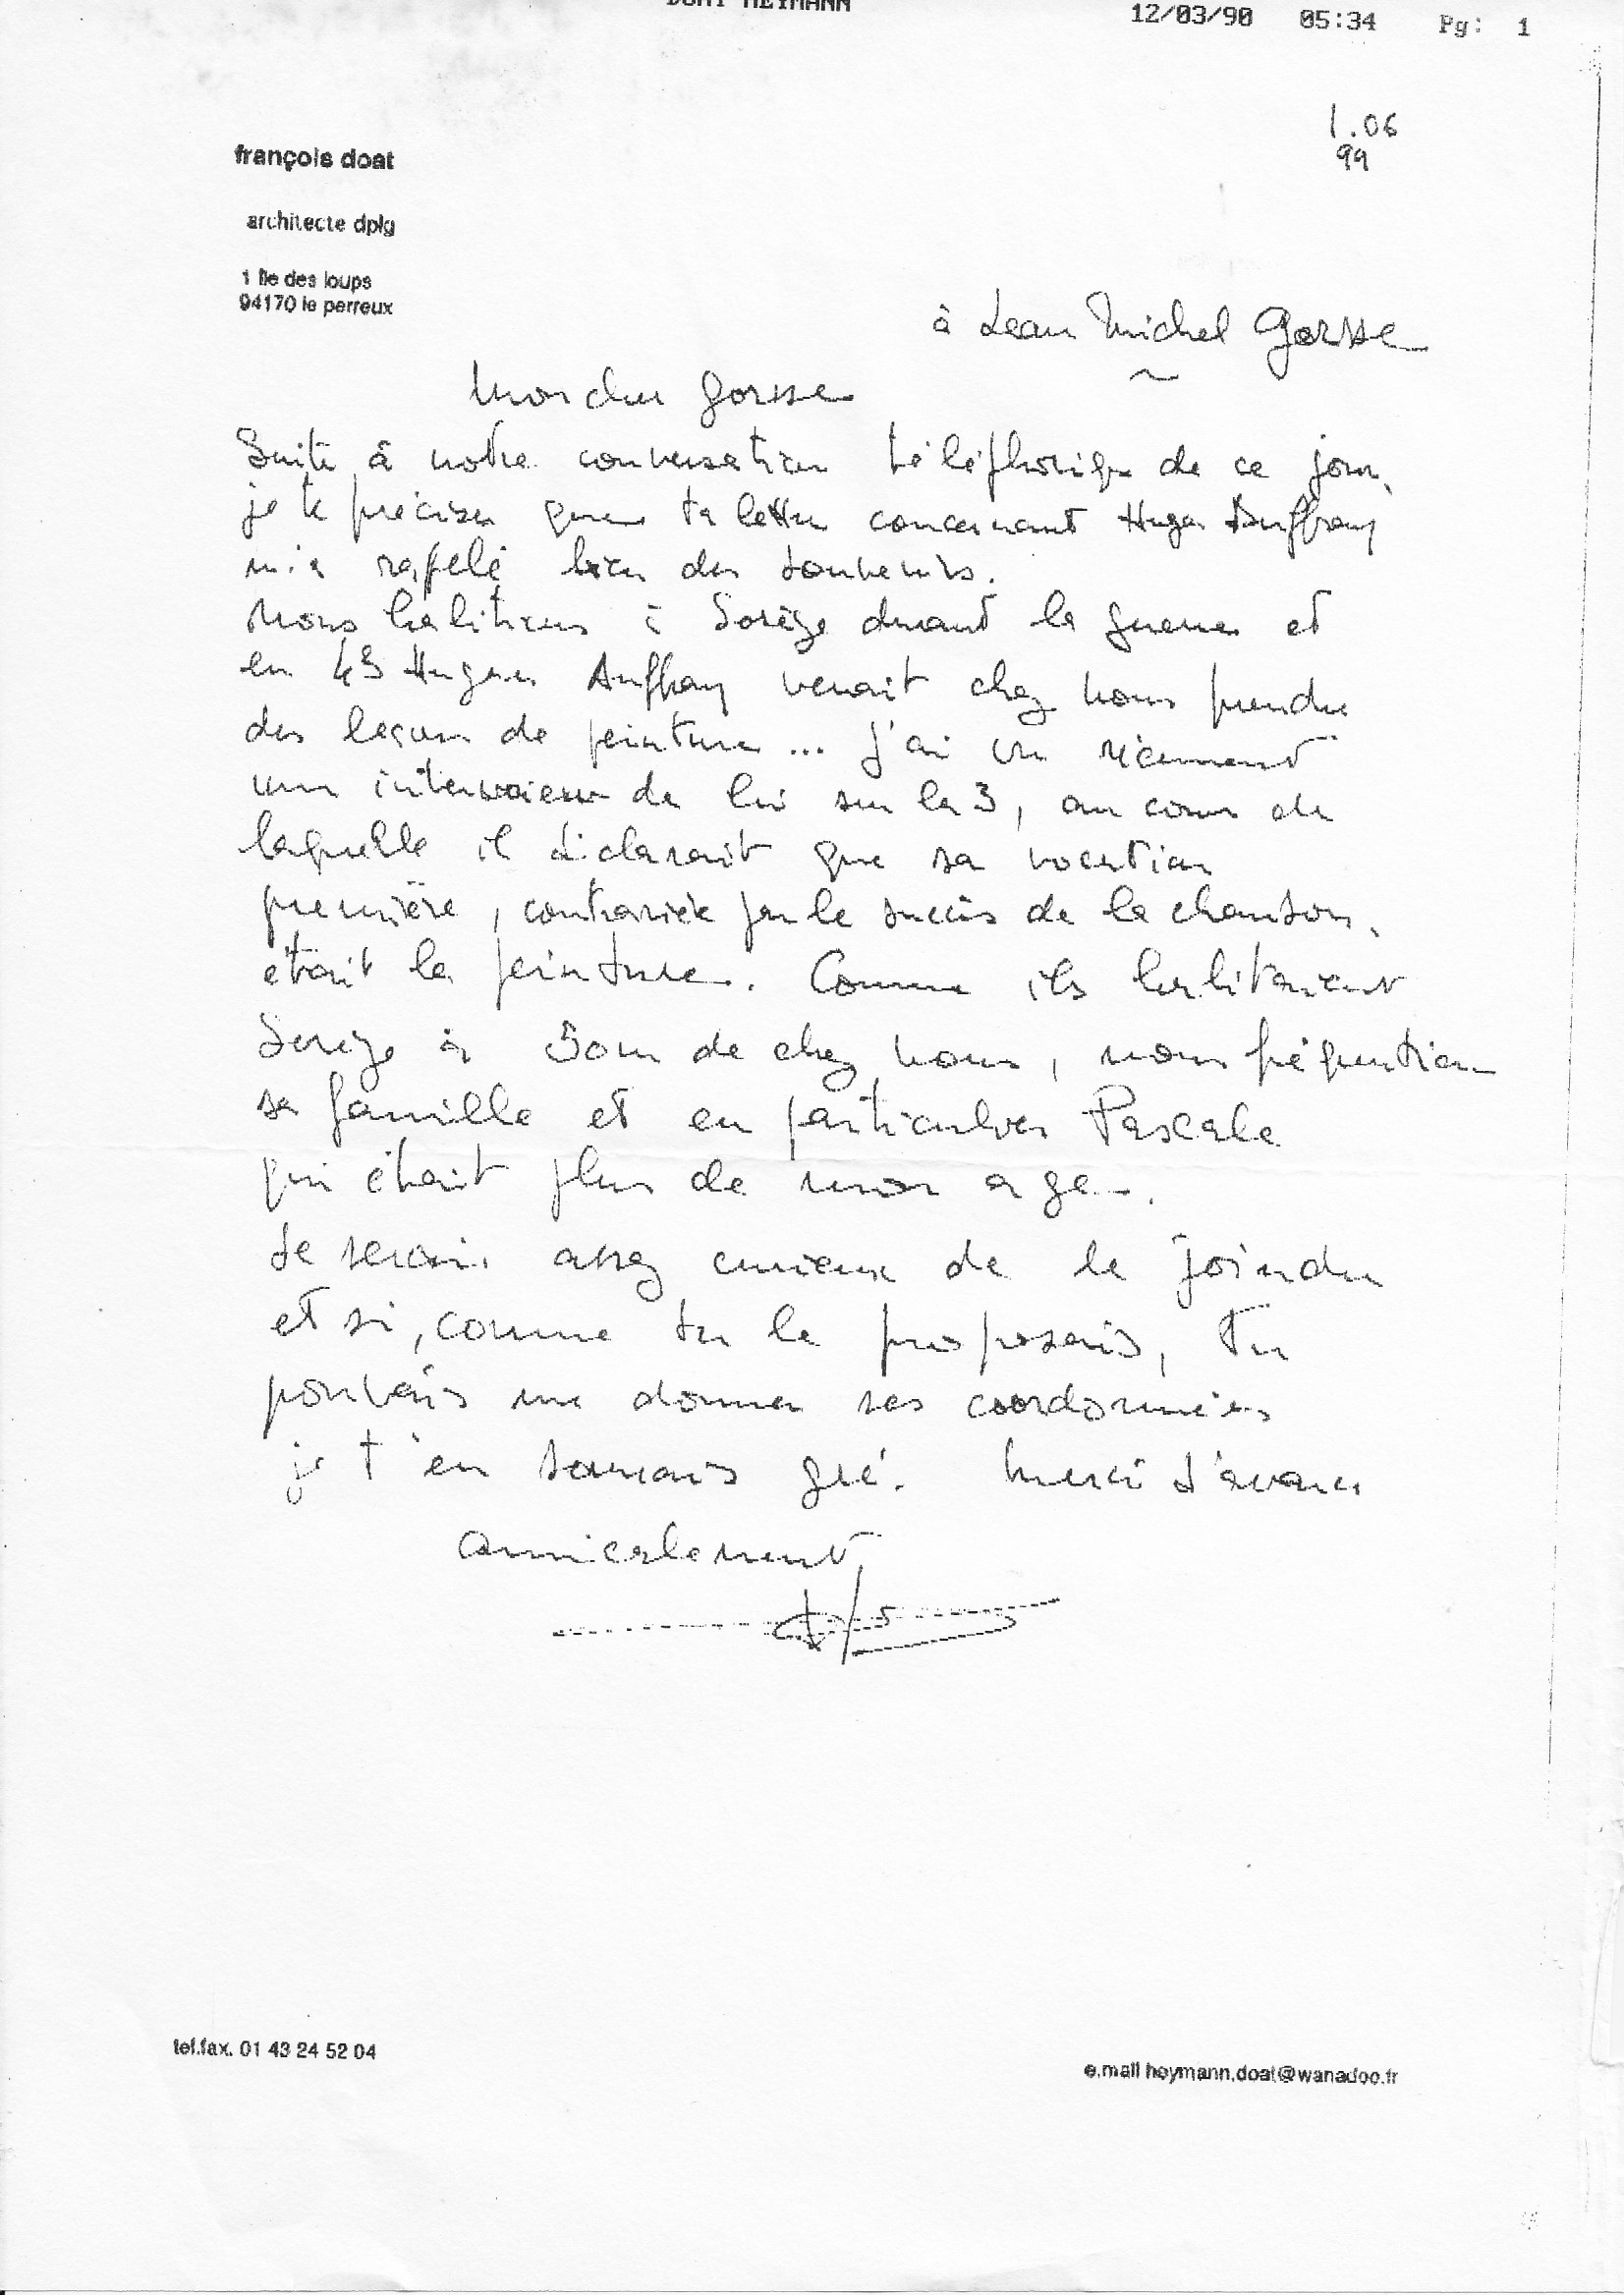 DOAT HEYMANN 12/03/90 05:34 Pg: 1
1.06
99
françois doat
architecte dplg
1 île des loups
94170 le perreux
à Jean Michel Gorsse
Mon cher Gorsse
Suite à notre conversation téléphonique de ce jour,
je te précise que ta lettre concernant Hugues Auffray
m'a rapelé bien des souvenirs.
Nous habitions à Sorèze durant la guerre et
en 43 Hugues Auffray venait chez nous prendre
des leçons de peinture... j'ai vu récemment
une interwview de lui sur la 3, au cours de
laquelle il déclarait que sa vocation
première, contrariée par le succès de la chanson,
était la peinture. Comme ils habitaient
Sorèze à 50m de chez nous, nous fréquention
sa famille et en particulier Pascale
qui était plus de mon age.
Je serais assez curieux de le joindre
et si, comme tu le proposais, tu
pouvais me donner ses coordonnées
je t'en saurais gré. Merci d'avance
amicalement
tel.fax. 01 43 24 52 04
e.mail heymann.doat@wanadoo.fr